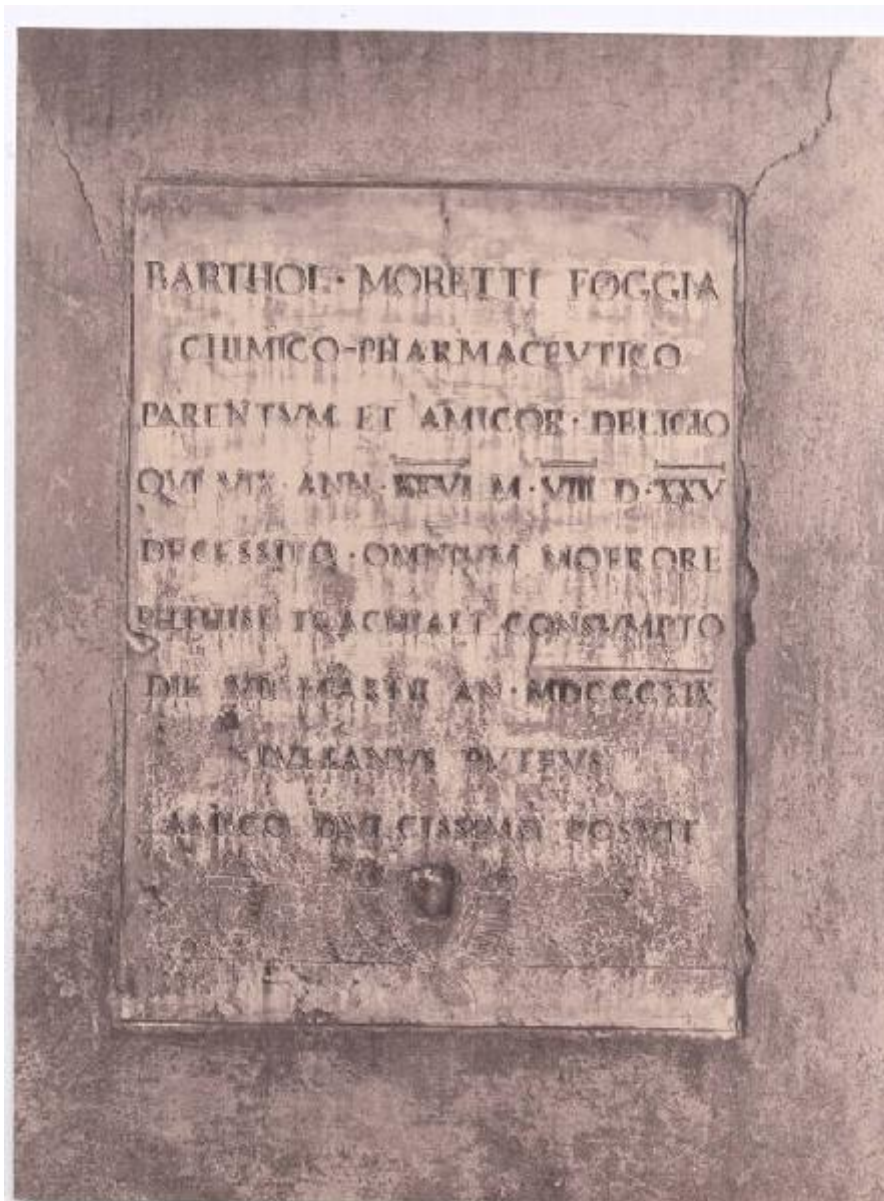 BARTHOL · MORETTI FOGGIA
CHIMICO-PHARMACEVTICO
PARENTVM ET AMICOR · DELICIO
QVI VIX · ANN · XXVI M · VIII D · XXV
DECESSITQ · OMNIVM MOERORE
PHTHISI TRACHIALI CONSVMPTO
DIE MARTII AN · MDCCCXIX
PVTEVS
AMICO DVLCISSIMO POSVIT